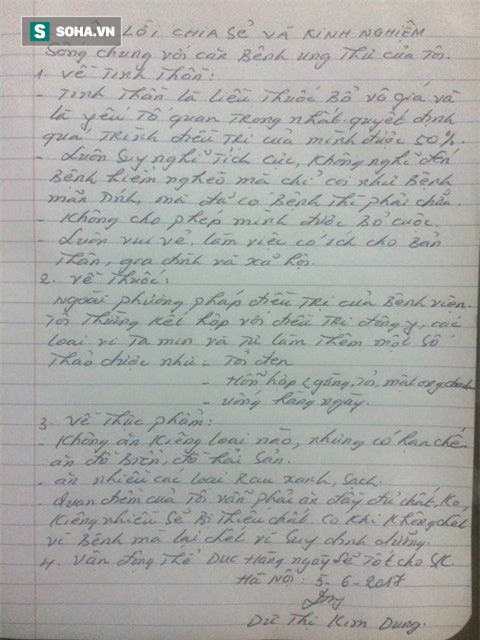 SOHA.VN
LỜI CHIA SẺ VÀ KINH NGHIỆM
Sống chung với căn Bệnh ung Thư của Tôi.
1. Về Tinh Thần:
- Tinh Thần là liều Thuốc Bổ vô giá và
là yếu Tố quan Trọng nhất. quyết định
quá Trình điều Trị của mình được 50%.
- Luôn Suy nghĩ Tích cực, không nghĩ đến
Bệnh hiểm nghèo mà chỉ coi như Bệnh
mãn Tính, mà đã có Bệnh Thì phải chữa.
- Không cho phép mình được Bỏ cuộc.
- Luôn vui vẻ, làm việc có ích cho Bản
Thân, gia đình và xã hội.
2. về Thuốc:
Ngoài phương pháp điều Trị của Bệnh viện.
Tôi Thường kết hợp với điều Trị đông y, các
loại vi Ta min và Tự làm Thêm một Số
Thảo dược như - Tỏi đen
- Hỗn hợp (gừng, Tỏi, mật ong, chanh
- uống hàng ngày.
3. về Thực phẩm:
- Không ăn Kiêng loại nào, nhưng có hạn chế
ăn đồ Biển, đồ hải Sản.
- ăn nhiều các loại Rau xanh, Sạch.
- Quan điểm của Tôi vẫn phải ăn đầy đủ chất, Ko,
Kiêng nhiều Sẽ Bị Thiếu chất. Có Khi Không chết
vì Bệnh mà lại chết vì Suy dinh dưỡng.
4. Vận động Thể Dục Hàng ngày Sẽ Tốt cho SK.
Hà Nội: 5-6-2017
Dư Thị Kim Dung.